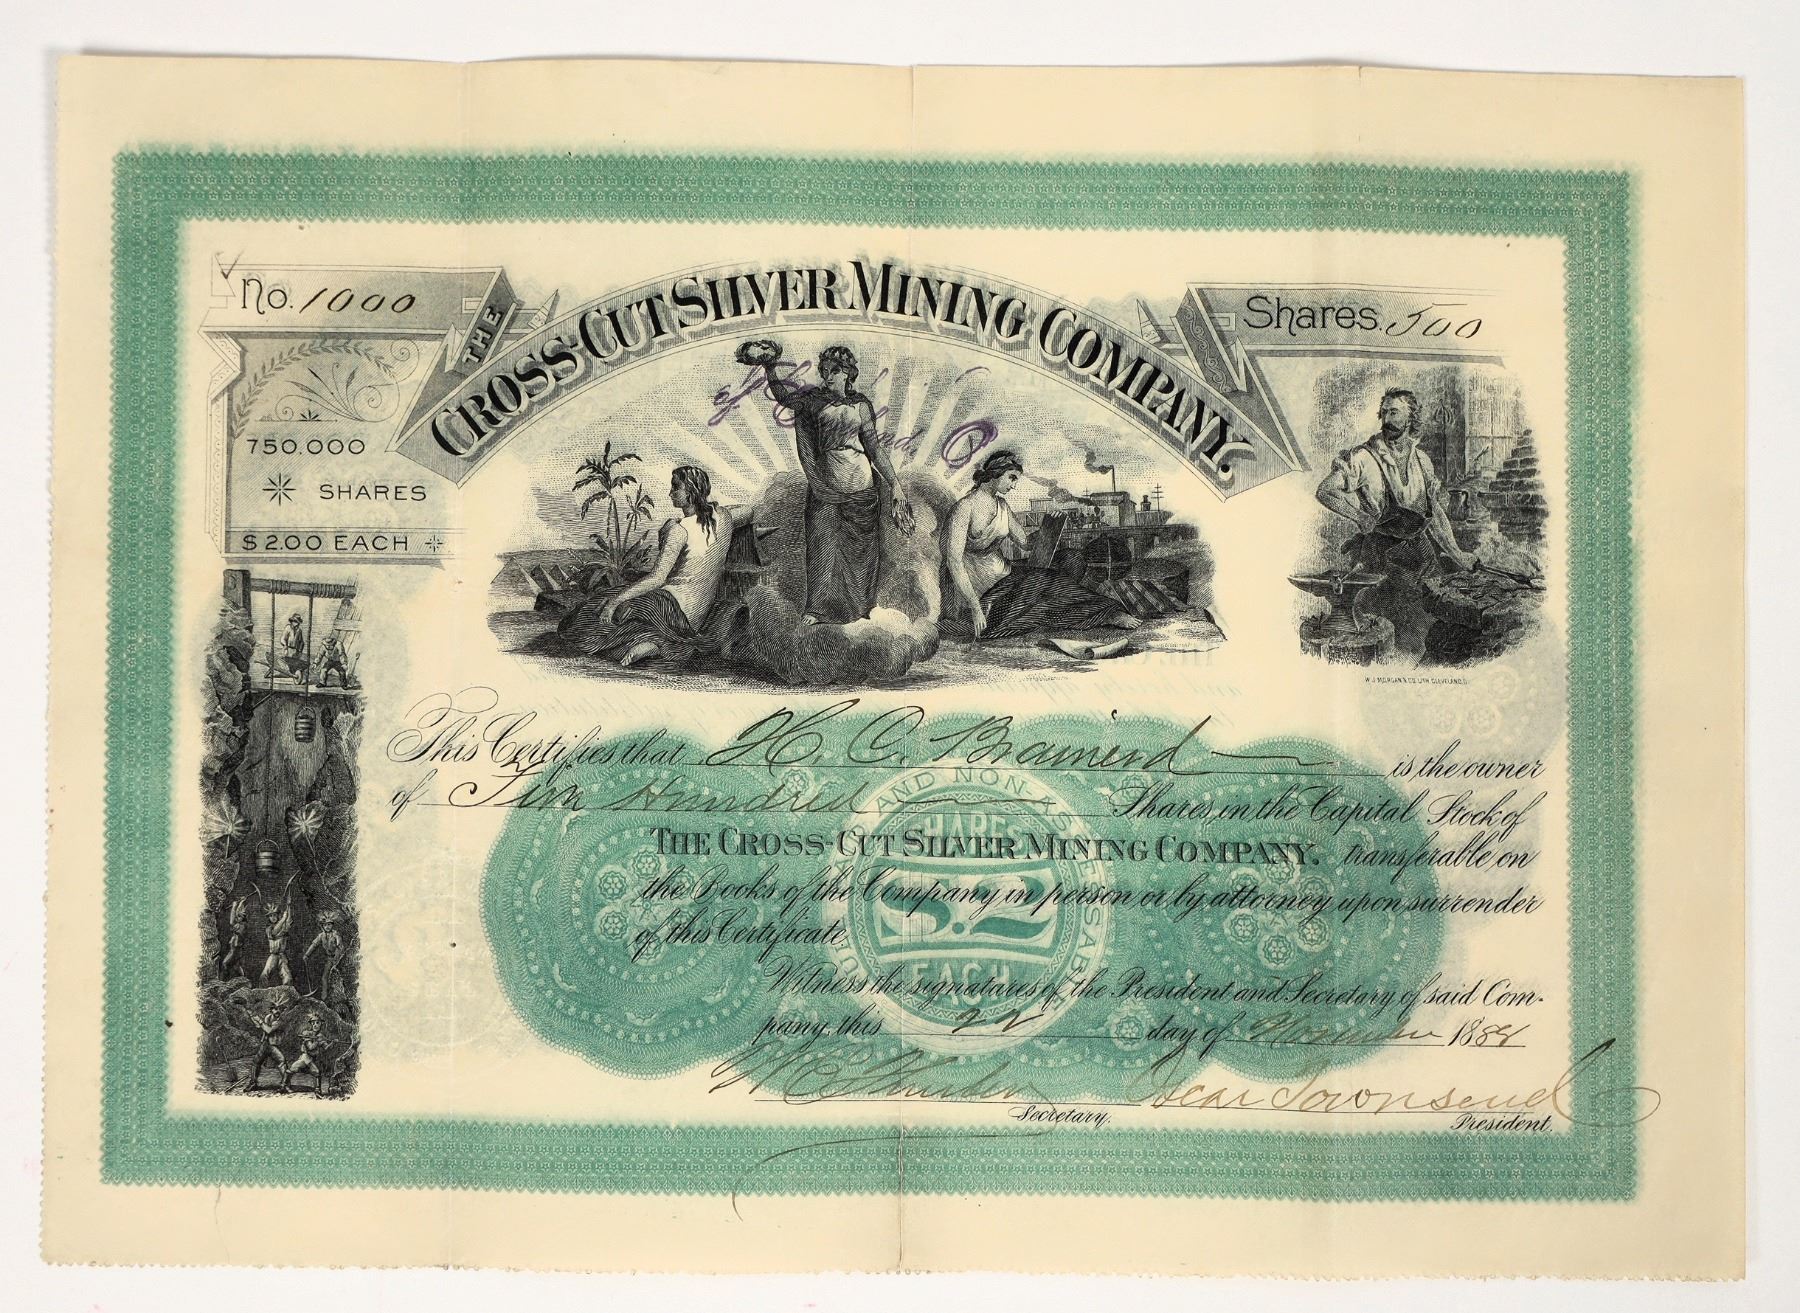 No. 1000
Shares. 500
THE
CROSS-CUT SILVER MINING COMPANY.
of Cleveland O
750.000
SHARES
$2.00 EACH
W.J. MORGAN & CO. LITH. CLEVELAND, O.
This Certifies that H. C. Brainerd is the owner
of Five Hundred Shares, in the Capital Stock of
THE CROSS-CUT SILVER MINING COMPANY. transferable on
the Books of the Company in person or by attorney upon surrender
of this Certificate.
AND NON-ASSESSABLE
SHARES
$.2
EACH
Witness the signatures of the President and Secretary of said Com-
pany, this 22 day of November 1884
Oscar Townsend
Secretary.
President.